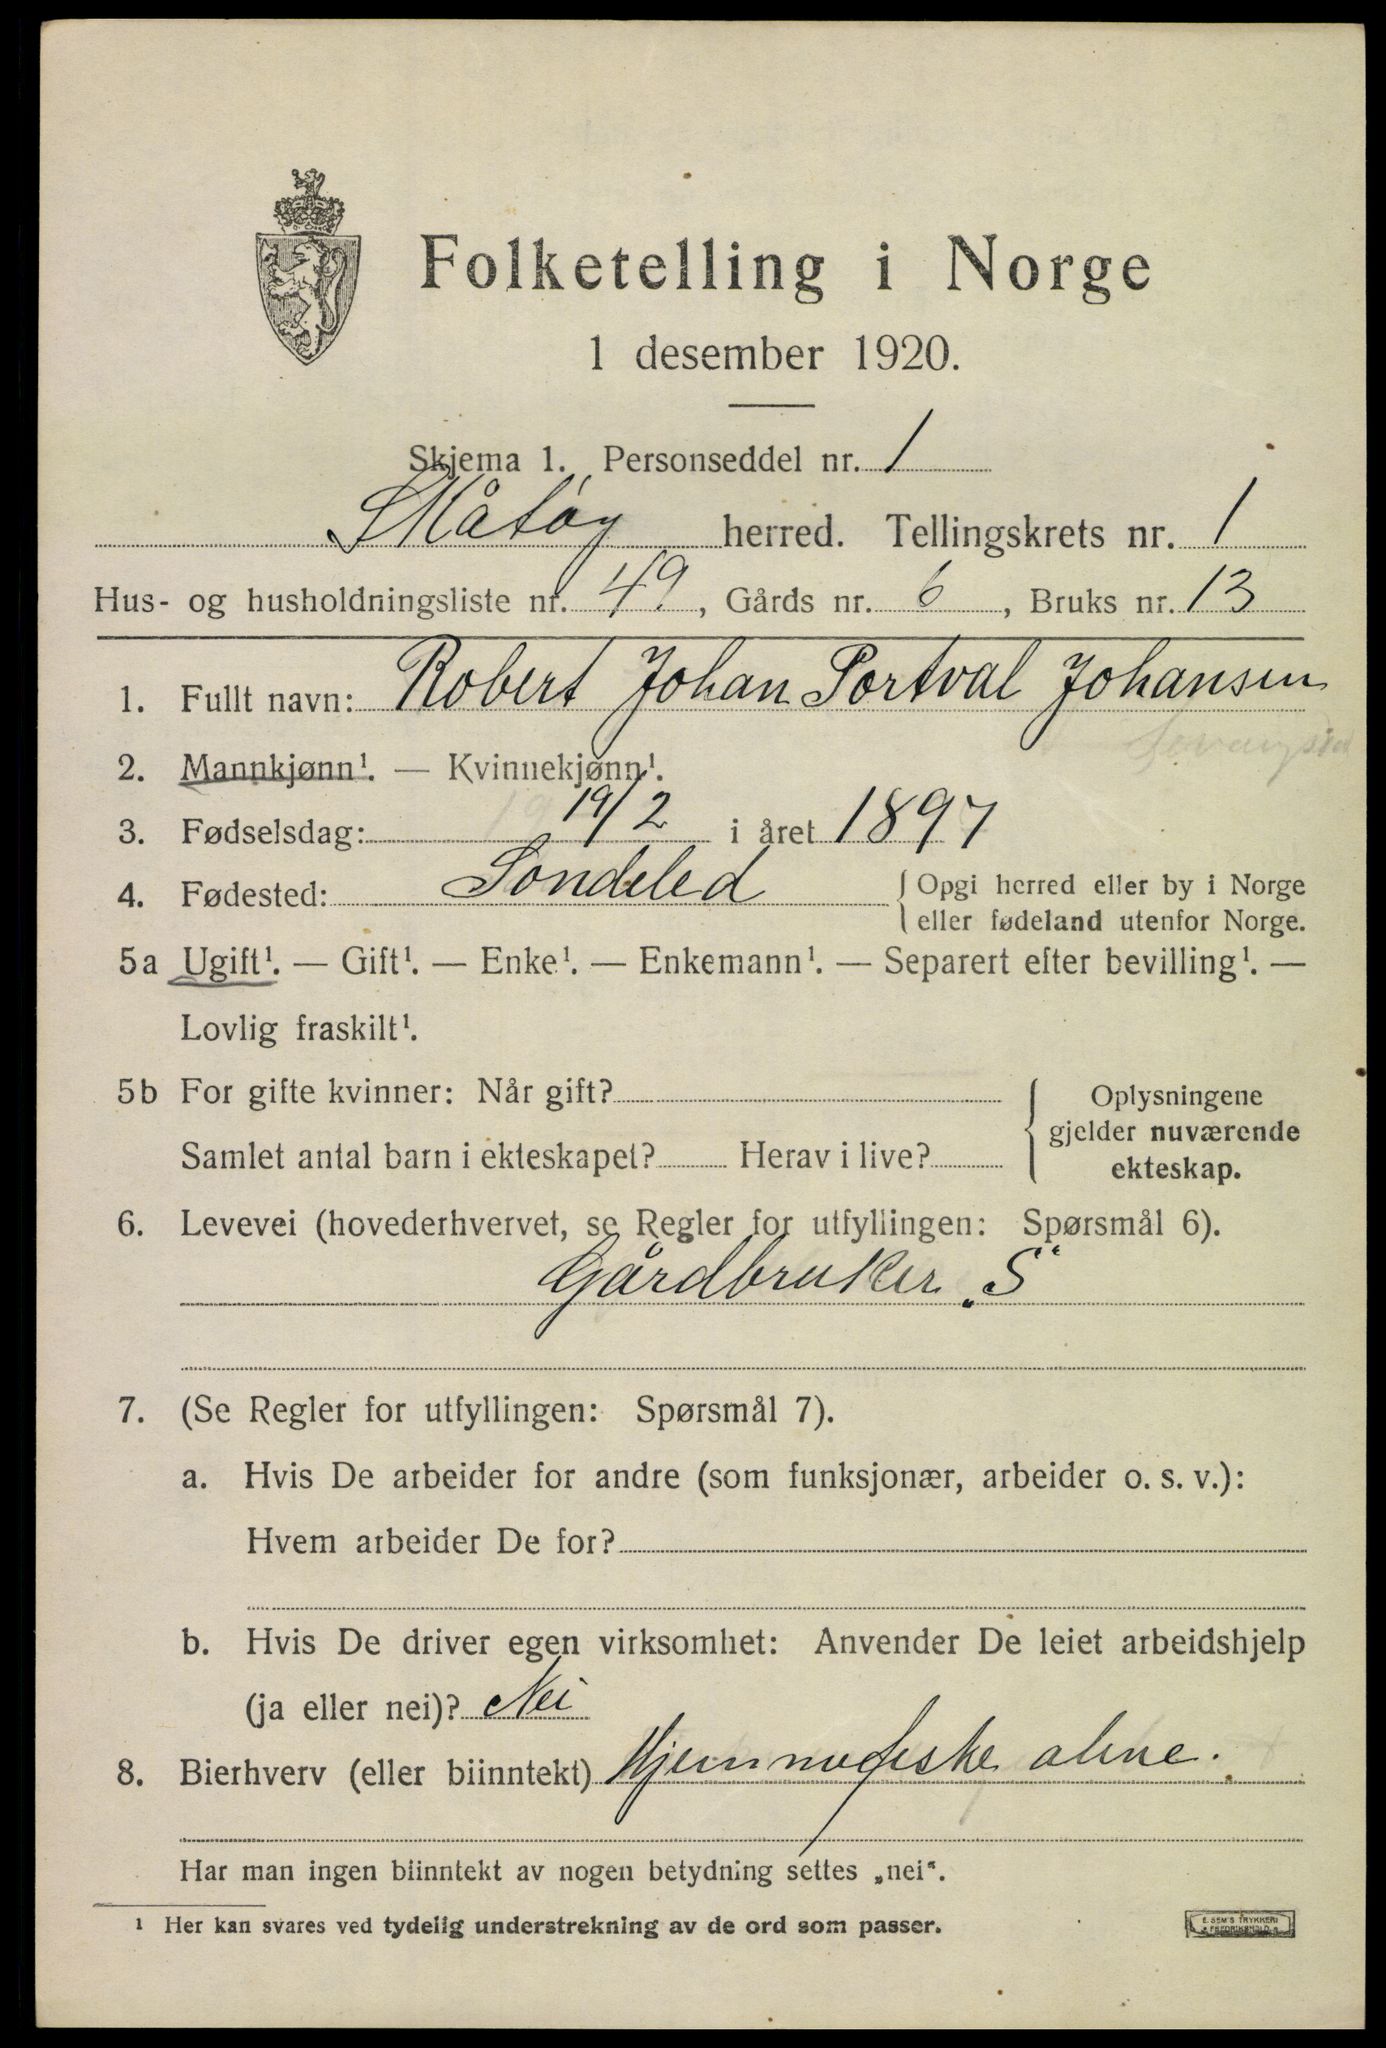 Folketelling i Norge
1 desember 1920.
Skjema 1. Personseddel nr. 1
Skåtøy herred. Tellingskrets nr. 1
Hus- og husholdningsliste nr. 49, Gårds nr. 6, Bruks nr. 13
1. Fullt navn: Robert Johan Portval Johansen
2. Mannkjønn¹. — Kvinnekjønn¹.
3. Fødselsdag: 19/2 i året 1897
4. Fødested: Søndeled { Opgi herred eller by i Norge
eller fødeland utenfor Norge.
5a Ugift¹. — Gift¹. — Enke¹. — Enkemann¹. — Separert efter bevilling¹. —
Lovlig fraskilt¹.
5b For gifte kvinner: Når gift? { Oplysningene
gjelder nuværende
Samlet antal barn i ekteskapet? Herav i live?
ekteskap.
6. Levevei (hovederhvervet, se Regler for utfyllingen: Spørsmål 6).
Gårdbruker „S“
7. (Se Regler for utfyllingen: Spørsmål 7).
a. Hvis De arbeider for andre (som funksjonær, arbeider o. s. v.):
Hvem arbeider De for?
b. Hvis De driver egen virksomhet: Anvender De leiet arbeidshjelp
(ja eller nei)? Nei
8. Bierhverv (eller biinntekt) Hjemmefiske alene.
Har man ingen biinntekt av nogen betydning settes „nei“.
1 Her kan svares ved tydelig understrekning av de ord som passer.
E. SEM'S TRYKKERI
FREDRIKSHALD